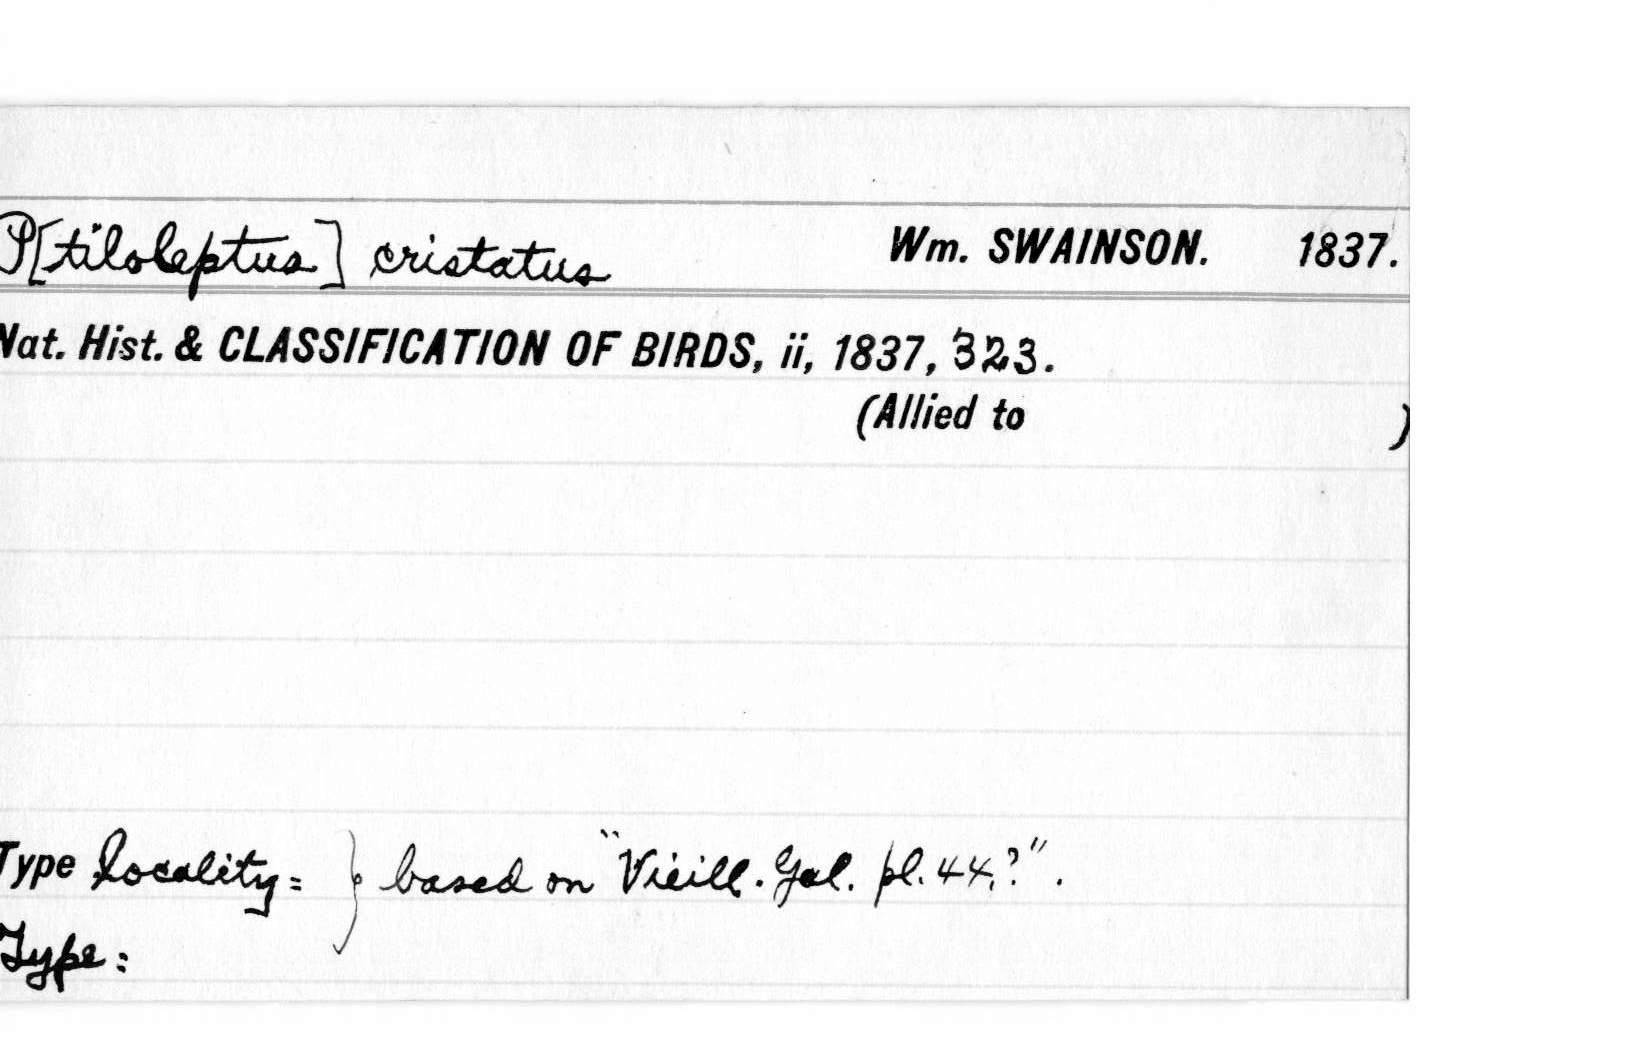 P[tiloleptus] cristatus Wm. SWAINSON. 1837.
Nat. Hist. & CLASSIFICATION OF BIRDS, ii, 1837, 323.
(Allied to )
Type locality: } based on "Vieill. Gal. pl. 44.?".
Type: